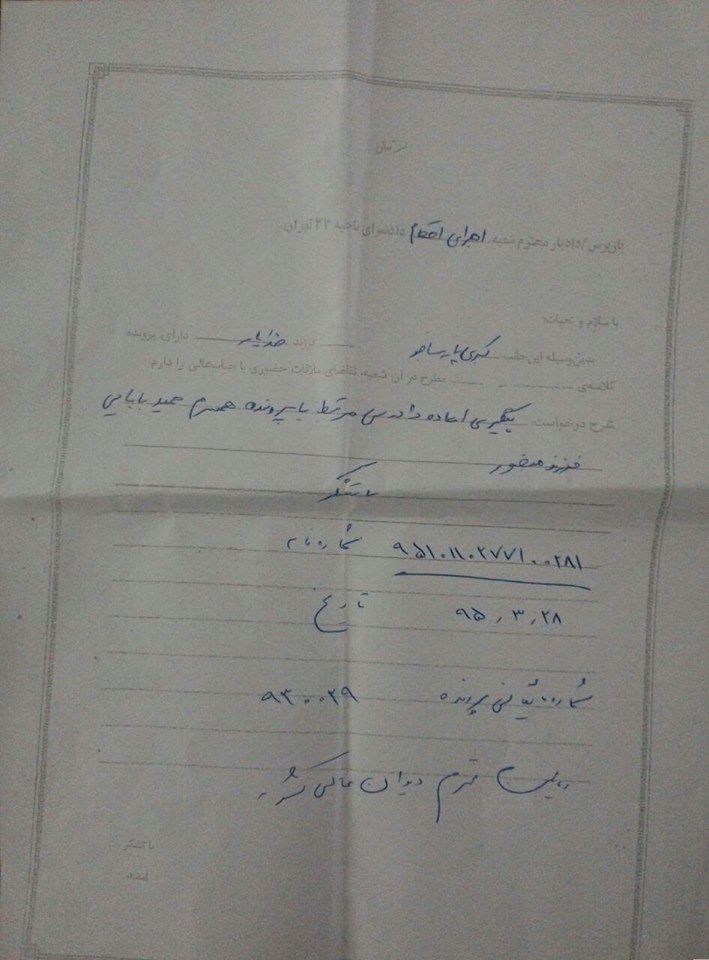 بازپرس/دادیار محترم شعبه اجرای احکام دادسرای ناحیه ۳۳ تهران
با سلام و تحیات؛
بدین‌وسیله این‌جانب کبری پارساجو فرزند خدایار دارای پرونده
کلاسه‌ی مطرح در آن شعبه، تقاضای ملاقات حضوری با جناب‌عالی را دارم.
شرح درخواست: پیگیری اعاده دادرسی مرتبط با پرونده همسرم حمید بابایی
فرزند منصور
با تشکر
۹۵۱۰۱۱۰۲۷۷۱۰۰۲۸۱ شماره نامه
۹۵٫۳٫۲۸ تاریخ
شماره بایگانی پرونده ۹۳۰۰۲۹
ریاست محترم دیوان عالی کشور
با تشکر
امضاء